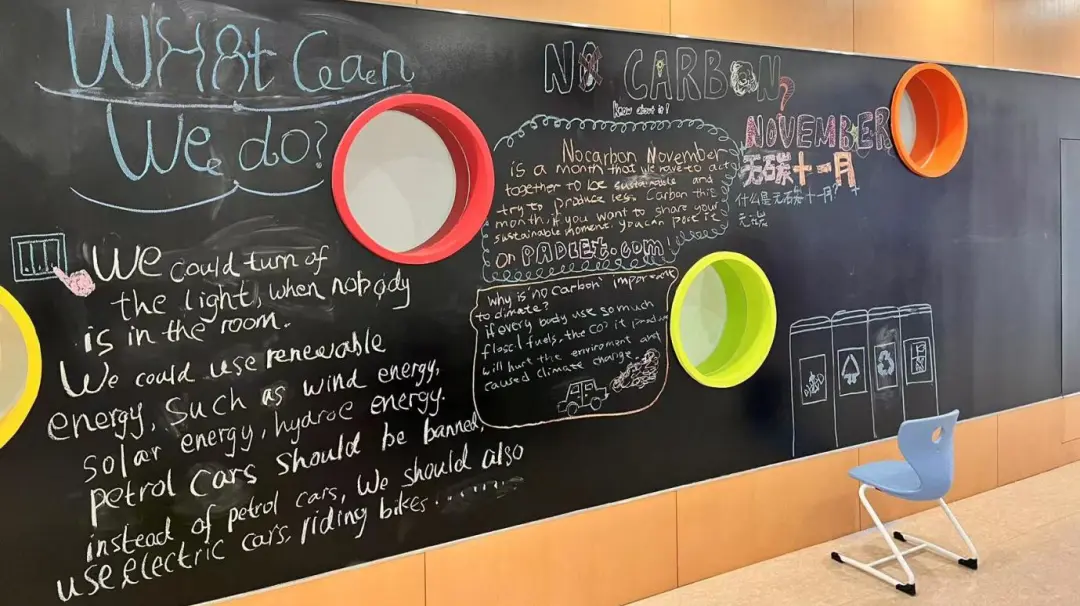 What Can
We do?
We could turn of
the light, when nobody
is in the room.
We could use renewable
energy, such as wind energy,
solar energy, hydroe energy.
petrol cars should be banned,
instead of petrol cars, We should also
use electric cars, riding bikes.........
NO CARBON
know about it!
Nocarbon November
is a month that we have to act
together to be sustainable and
try to produce less Carbon this
month. if you want to share your
sustainable moment, you can post it
on PADLET.com!
Why is no carbon important
to climate?
if every body use so much
flossil fuels, the CO2 it produce
will hurt the enviroment and
caused climate change.
?
NOVEMBER
无碳十一月
什么是无碳十一月?
无碳